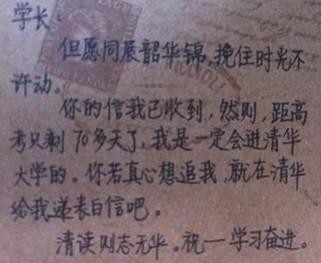 学长：
但愿同展韶华锦，挽住时光不
许动。
你的信我已收到，然则，距高
考只剩70多天了，我是一定会进清华
大学的。你若真心想追我，就在清华
给我递表白信吧。
清读则志无华。祝一学习奋进。